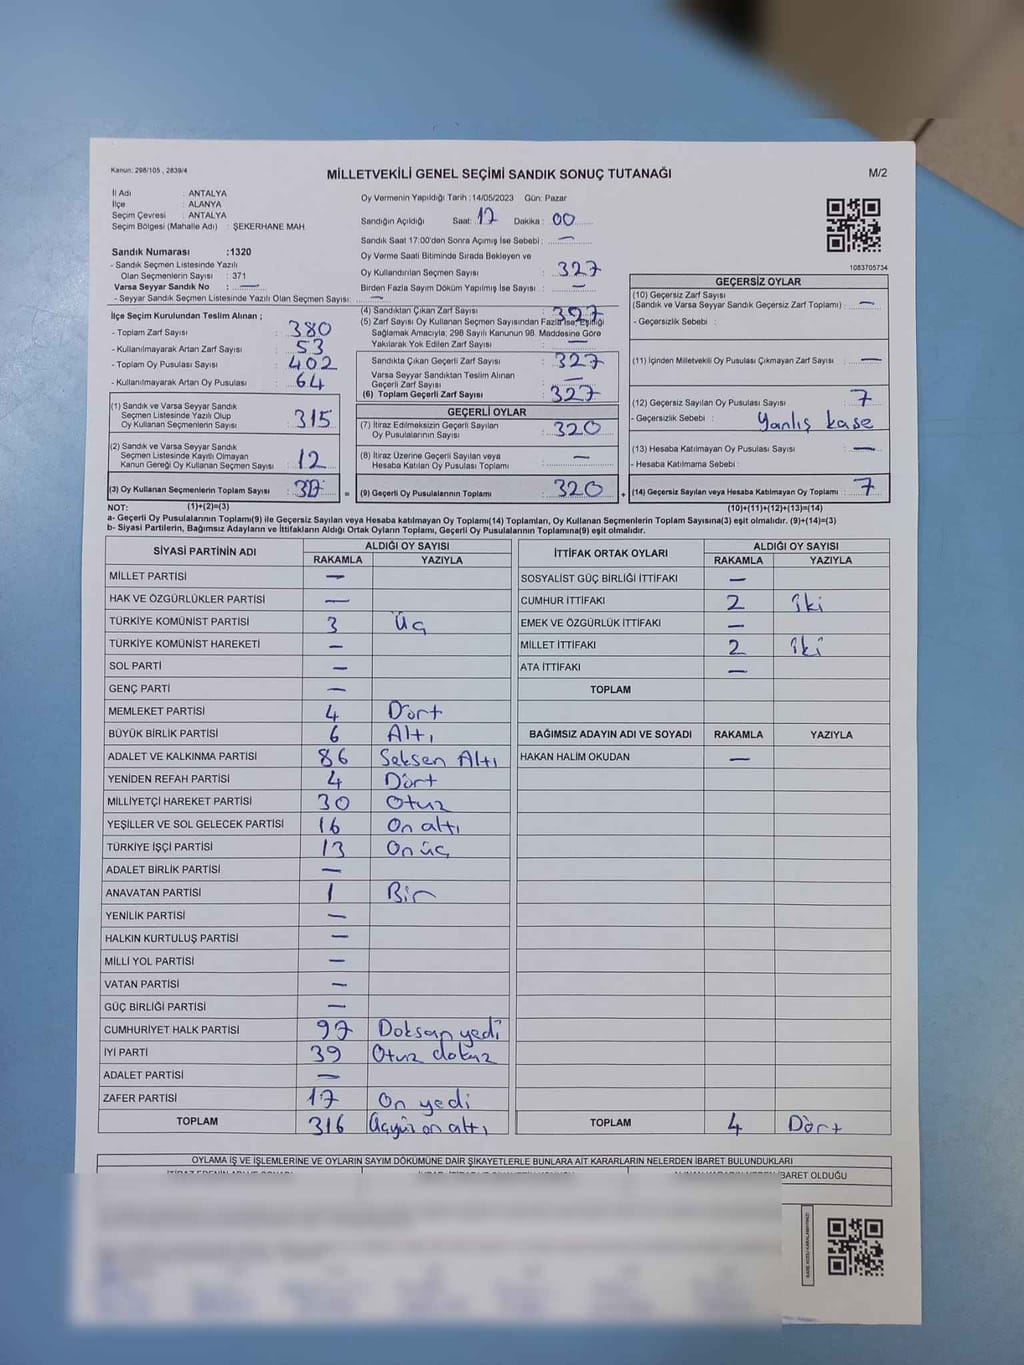 Kanun: 298/105 , 2839/4
MİLLETVEKİLİ GENEL SEÇİMİ SANDIK SONUÇ TUTANAĞI
M/2
İl Adı : ANTALYA
İlçe : ALANYA
Seçim Çevresi : ANTALYA
Seçim Bölgesi (Mahalle Adı) : ŞEKERHANE MAH.
Sandık Numarası :1320
- Sandık Seçmen Listesinde Yazılı
Olan Seçmenlerin Sayısı : 371
Varsa Seyyar Sandık No : —
- Seyyar Sandık Seçmen Listesinde Yazılı Olan Seçmen Sayısı: —
Oy Vermenin Yapıldığı Tarih :14/05/2023 Gün: Pazar
Sandığın Açıldığı Saat: 17 Dakika: 00
Sandık Saat 17:00'den Sonra Açımış İse Sebebi : —
Oy Verme Saati Bitiminde Sırada Bekleyen ve
Oy Kullandırılan Seçmen Sayısı : 327
Birden Fazla Sayım Döküm Yapılmış İse Sayısı : —
1083705734
İlçe Seçim Kurulundan Teslim Alınan ;
- Toplam Zarf Sayısı : 380
- Kullanılmayarak Artan Zarf Sayısı : 53
- Toplam Oy Pusulası Sayısı : 402
- Kullanılmayarak Artan Oy Pusulası : 64
(1) Sandık ve Varsa Seyyar Sandık
Seçmen Listesinde Yazılı Olup
Oy Kullanan Seçmenlerin Sayısı : 315
(2) Sandık ve Varsa Seyyar Sandık
Seçmen Listesinde Kayıtlı Olmayan
Kanun Gereği Oy Kullanan Seçmen Sayısı : 12
(3) Oy Kullanan Seçmenlerin Toplam Sayısı :
(4) Sandıktan Çıkan Zarf Sayısı : 327
(5) Zarf Sayısı Oy Kullanan Seçmen Sayısından Fazla İse, Eşitliği
Sağlamak Amacıyla; 298 Sayılı Kanunun 98. Maddesine Göre
Yakılarak Yok Edilen Zarf Sayısı : —
Sandıkta Çıkan Geçerli Zarf Sayısı : 327
Varsa Seyyar Sandıktan Teslim Alınan
Geçerli Zarf Sayısı : —
(6) Toplam Geçerli Zarf Sayısı : 327
GEÇERLİ OYLAR
(7) İtiraz Edilmeksizin Geçerli Sayılan
Oy Pusulalarının Sayısı : 320
(8) İtiraz Üzerine Geçerli Sayılan veya
Hesaba Katılan Oy Pusulası Toplamı : —
= (9) Geçerli Oy Pusulalarının Toplamı : 320 +
GEÇERSİZ OYLAR
(10) Geçersiz Zarf Sayısı
(Sandık ve Varsa Seyyar Sandık Geçersiz Zarf Toplamı) : —
- Geçersizlik Sebebi :
(11) İçinden Milletvekili Oy Pusulası Çıkmayan Zarf Sayısı : —
(12) Geçersiz Sayılan Oy Pusulası Sayısı : 7
- Geçersizlik Sebebi : Yanlış kase
(13) Hesaba Katılmayan Oy Pusulası Sayısı : —
- Hesaba Katılmama Sebebi :
(14) Geçersiz Sayılan veya Hesaba Katılmayan Oy Toplamı : 7
NOT: (1)+(2)=(3) (10)+(11)+(12)+(13)=(14)
a- Geçerli Oy Pusulalarının Toplamı(9) ile Geçersiz Sayılan veya Hesaba katılmayan Oy Toplamı(14) Toplamları, Oy Kullanan Seçmenlerin Toplam Sayısına(3) eşit olmalıdır. (9)+(14)=(3)
b- Siyasi Partilerin, Bağımsız Adayların ve İttifakların Aldığı Ortak Oyların Toplamı, Geçerli Oy Pusulalarının Toplamına(9) eşit olmalıdır.
SİYASİ PARTİNİN ADI ALDIĞI OY SAYISI
RAKAMLA YAZIYLA
MİLLET PARTİSİ —
HAK VE ÖZGÜRLÜKLER PARTİSİ —
TÜRKİYE KOMÜNİST PARTİSİ 3 Üç
TÜRKİYE KOMÜNİST HAREKETİ —
SOL PARTİ —
GENÇ PARTİ —
MEMLEKET PARTİSİ 4 Dört
BÜYÜK BİRLİK PARTİSİ 6 Altı
ADALET VE KALKINMA PARTİSİ 86 Seksen Altı
YENİDEN REFAH PARTİSİ 4 Dört
MİLLİYETÇİ HAREKET PARTİSİ 30 Otuz
YEŞİLLER VE SOL GELECEK PARTİSİ 16 On altı
TÜRKİYE İŞÇİ PARTİSİ 13 On üç
ADALET BİRLİK PARTİSİ —
ANAVATAN PARTİSİ 1 Bir
YENİLİK PARTİSİ —
HALKIN KURTULUŞ PARTİSİ —
MİLLİ YOL PARTİSİ —
VATAN PARTİSİ —
GÜÇ BİRLİĞİ PARTİSİ —
CUMHURİYET HALK PARTİSİ 97 Doksan yedi
İYİ PARTİ 39 Otuz dokuz
ADALET PARTİSİ —
ZAFER PARTİSİ 17 On yedi
TOPLAM 316 Üçyüz on altı
İTTİFAK ORTAK OYLARI ALDIĞI OY SAYISI
RAKAMLA YAZIYLA
SOSYALİST GÜÇ BİRLİĞİ İTTİFAKI —
CUMHUR İTTİFAKI 2 iki
EMEK VE ÖZGÜRLÜK İTTİFAKI —
MİLLET İTTİFAKI 2 iki
ATA İTTİFAKI —
TOPLAM
BAĞIMSIZ ADAYIN ADI VE SOYADI RAKAMLA YAZIYLA
HAKAN HALİM OKUDAN —
TOPLAM 4 Dört
OYLAMA İŞ VE İŞLEMLERİNE VE OYLARIN SAYIM DÖKÜMÜNE DAİR ŞİKAYETLERLE BUNLARA AİT KARARLARIN NELERDEN İBARET BULUNDUKLARI
İBARET OLDUĞU